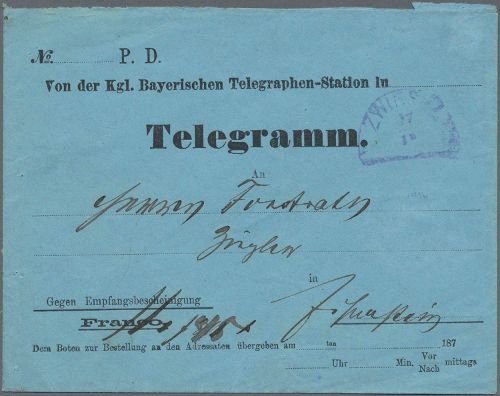 No. P. D.
Von der Kgl. Bayerischen Telegraphen-Station in
ZWIESEL
17
Telegramm.
An
Herrn Forstrath
Ziegler
in
Gegen Empfangsbescheinigung
Franco.
Dem Boten zur Bestellung an den Adressaten übergeben am ten 187
Uhr Min. Vor mittags
Nach